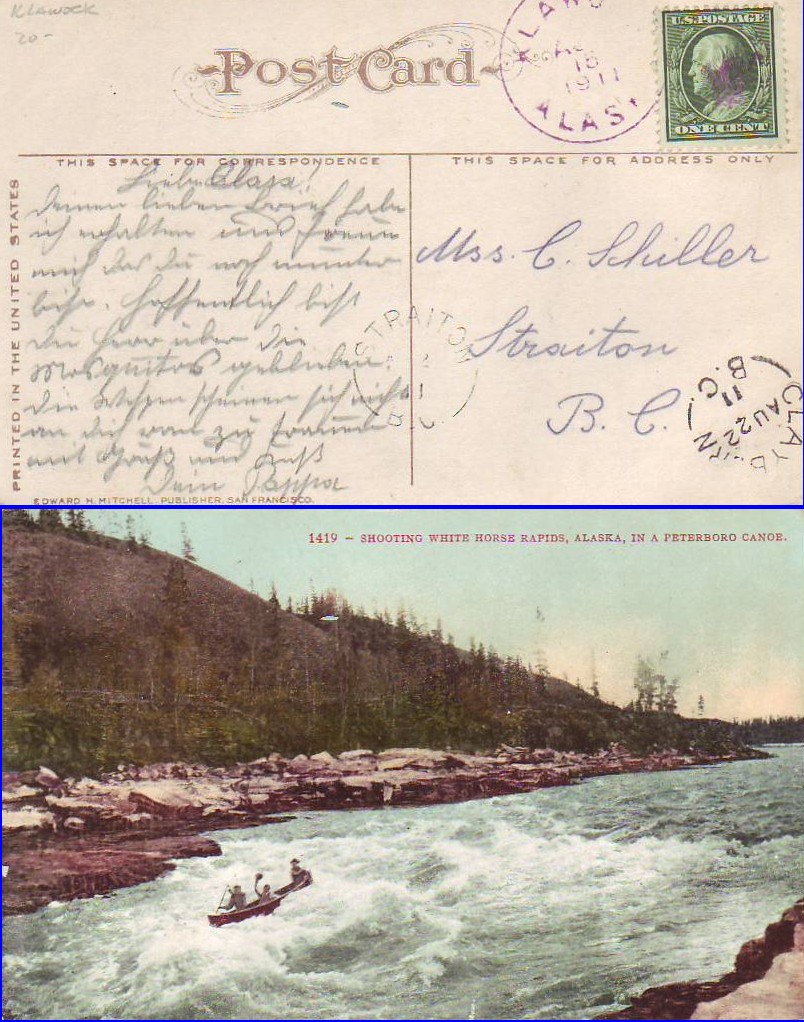 KLAWOCK
20-
Post Card
KLAWO
18
1911
ALAS
U.S. POSTAGE
ONE CENT
THIS SPACE FOR CORRESPONDENCE
THIS SPACE FOR ADDRESS ONLY
PRINTED IN THE UNITED STATES
Liebe Clara!
Deinen lieben Brief habe
ich erhalten und freue
mich das du noch munter
bist. Hoffentlich bist
du Herr über die
Mosquitos geblieben.
Die Wespen scheinen sich nicht
an dich ran zu trauen
mit Gruß und Kuß
Dein Pappa
Mss. C. Schiller
Straiton
B. C.
STRAITON
CLAYB
AU 22
11
B.C.
EDWARD H. MITCHELL, PUBLISHER, SAN FRANCISCO.
1419 – SHOOTING WHITE HORSE RAPIDS, ALASKA, IN A PETERBORO CANOE.